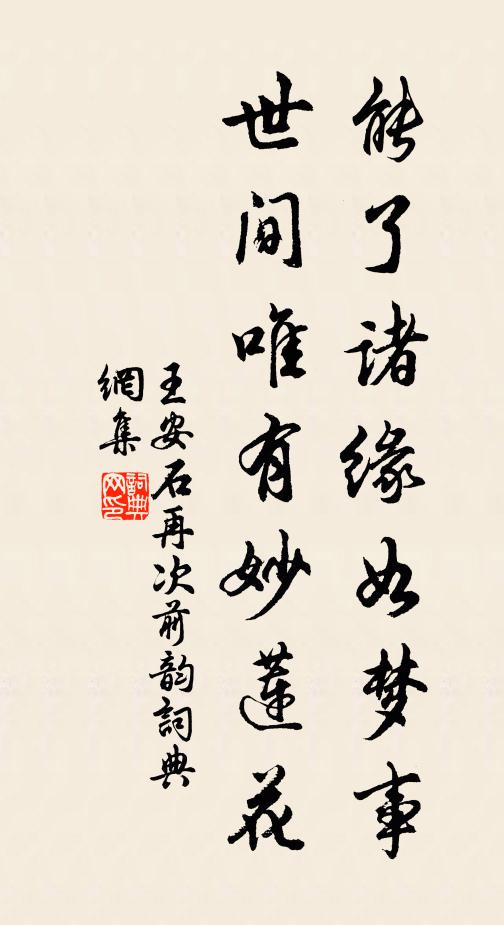 能了诸缘如梦事
世间唯有妙莲花
王安石再次前韵詞典
網集
詞典
网印